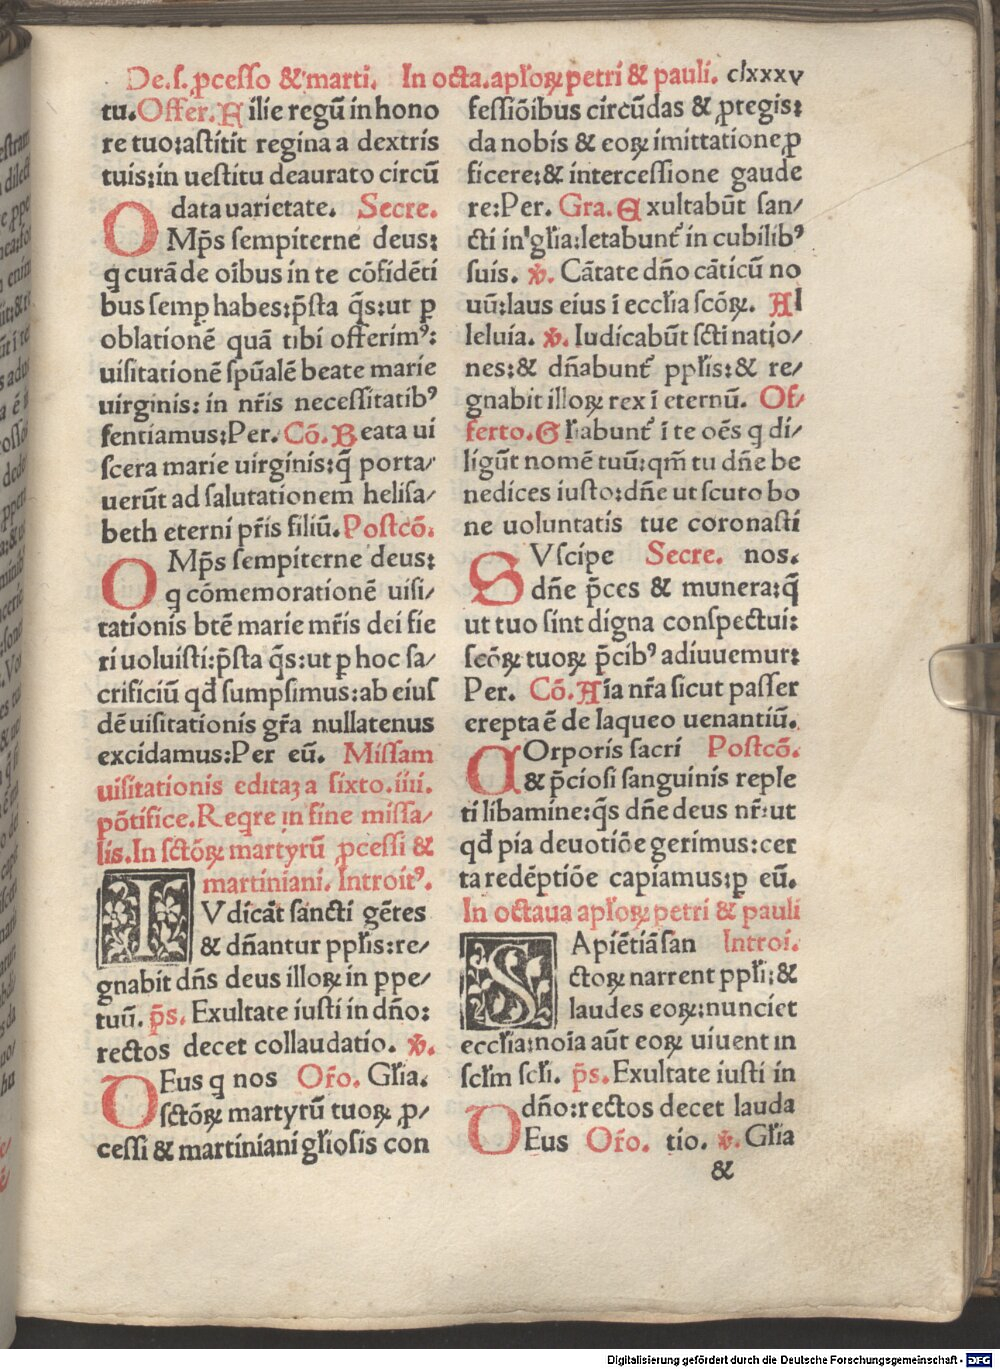 De.s. ꝓcesso & marti. In octa.apłoꝝ petri & pauli. clxxxv
tu. Offer. Filie regū in hono
re tuo:astitit regina a dextris
tuis:in uestitu deaurato circū
data uarietate. Secre.
OMp̄s sempiterne deus:
q̄ curā de oībus in te cōfidēti
bus semp habes:p̄sta q̄s:ut ꝑ
oblationē quā tibi offerimꝰ:
uisitationē spūalē beate marie
uirginis: in nr̄is necessitatibꝰ
sentiamus:Per. Cō. Beata ui
scera marie uirginis:q̄ porta/
uerūt ad salutationem helisa/
beth eterni pr̄is filiū. Postcō.
OMp̄s sempiterne deus:
q cōmemorationē uisi/
tationis btē marie mr̄is dei fie
ri uoluisti:p̄sta q̄s:ut ꝑ hoc sa/
crificiū qđ sumpsimus:ab eius
dē uisitationis gr̄a nullatenus
excidamus:Per eū. Missam
uisitationis editaʒ a sixto.iiii.
pōtifice. Reqre in fine missa/
lis. In sctōꝝ martyrū ꝓcessi &
martiniani. Introitꝰ.
IVdicāt sancti gētes
& dn̄antur ppłis:re/
gnabit dn̄s deus illoꝝ in ppe/
tuū. p̄s. Exultate iusti in dn̄o:
rectos decet collaudatio. ꝟ.
DEus q nos Or̄o. Głia.
sctōꝝ martyrū tuoꝝ ꝓ/
cessi & martiniani głiosis con
fessiōibus circūdas & ꝓtegis:
da nobis & eoꝝ imittatione ꝓ
ficere:& intercessione gaude
re:Per. Gra. Exultabūt san/
cti in głia:letabunt᷑ in cubilibꝰ
suis. ꝟ. Cātate dn̄o cāticū no
uū:laus eius ī eccłia scōꝝ. Al
leluia. ꝟ. Iudicabūt scti natio/
nes:& dn̄abunt᷑ ppłis:& re/
gnabit illoꝝ rex ī eternū. Of/
ferto. Głiabunt᷑ ī te oēs q di/
ligūt nomē tuū:qm̄ tu dn̄e be
nedices iusto:dn̄e ut scuto bo
ne uoluntatis tue coronasti
SVscipe Secre. nos.
dn̄e p̄ces & munera:q̄
ut tuo sint digna conspectui:
scōꝝ tuoꝝ p̄cibꝰ adiuuemur:
Per. Cō. Aia nr̄a sicut passer
erepta ē de laqueo uenantiū.
COrporis sacri Postcō.
& p̄ciosi sanguinis reple
ti libamine:q̄s dn̄e deus nr̄:ut
qđ pia deuotiōe gerimus:cer
ta redēptiōe capiamus:ꝑ eū.
In octaua apłoꝝ petri & pauli
SApiētiā san Introi.
ctoꝝ narrent ppłi:&
laudes eoꝝ:nunciet
eccłia:noīa aūt eoꝝ uiuent in
scłm scłi. p̄s. Exultate iusti in
dn̄o:rectos decet lauda
DEus Or̄o. tio. ꝟ. Głia
&
Digitalisierung gefördert durch die Deutsche Forschungsgemeinschaft - DFG